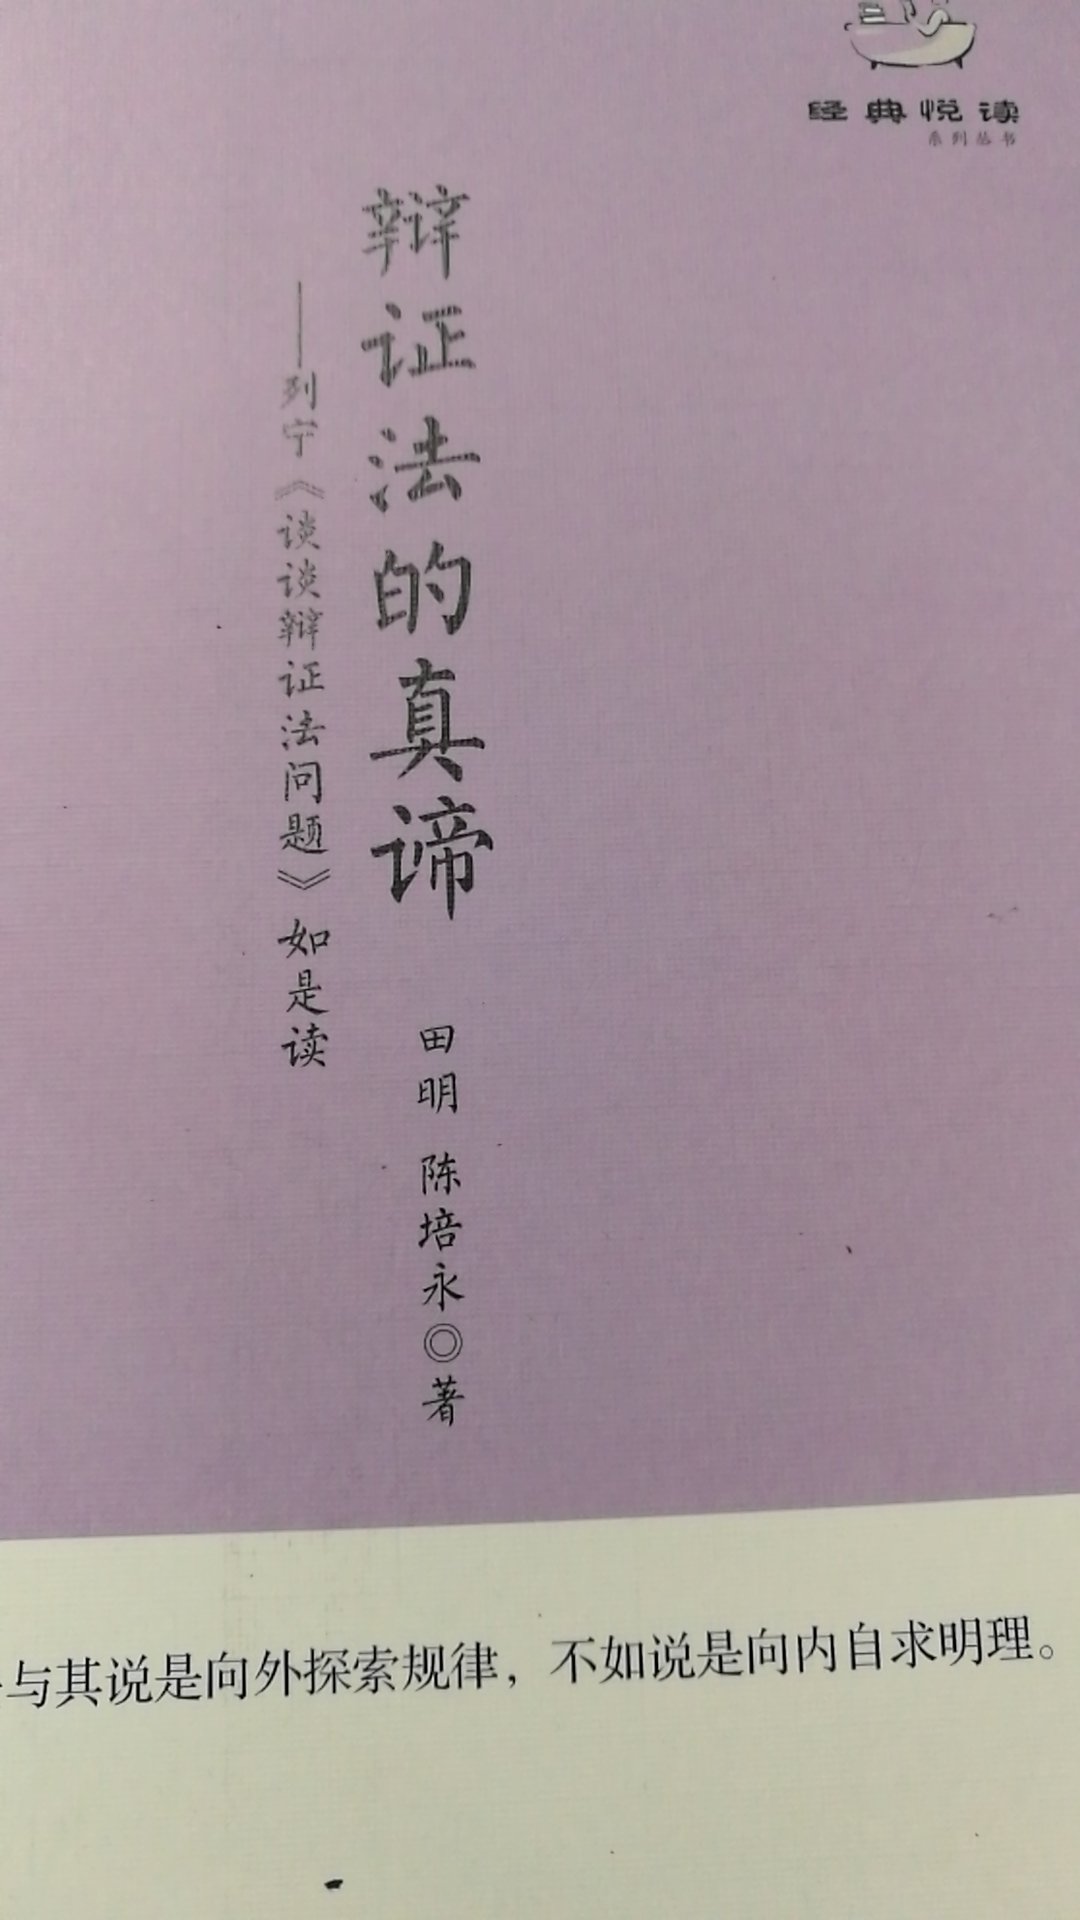 经典悦读
系列丛书
辩证法的真谛
——列宁《谈谈辩证法问题》如是读
田明 陈培永◎著
与其说是向外探索规律，不如说是向内自求明理。